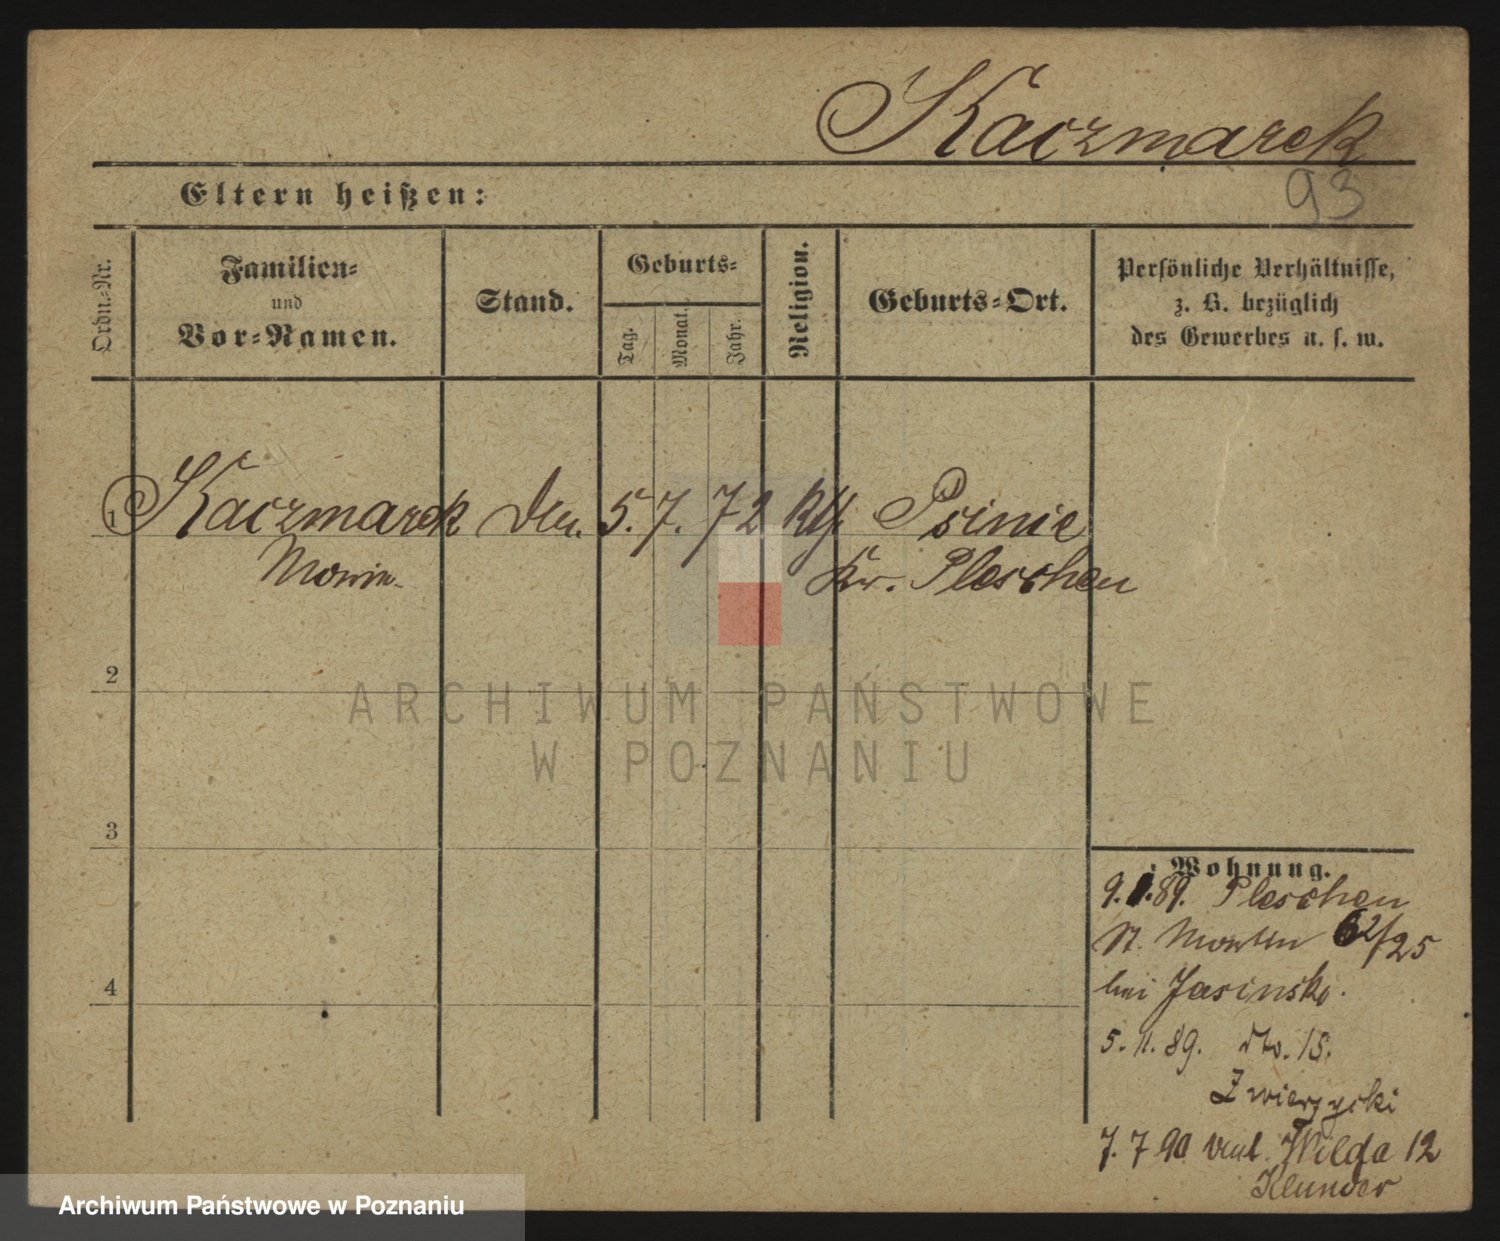 Kaczmarek
93
Eltern heißen:
Ordn.-Nr.
Familien-
und
Vor-Namen.
Stand.
Geburts-
Tag.
Monat.
Jahr.
Religion.
Geburts-Ort.
Persönliche Verhältnisse,
z. B. bezüglich
des Gewerbes u. s. w.
1 Kaczmarek 5. 7. 72 kth. Psinie
Kr. Pleschen
2
3
4
ARCHIWUM PAŃSTWOWE
W POZNANIU
Wohnung.
89. Pleschen
St. Martin 62/25
bei Jasinski.
5. 11. 89. dto. 15.
Zwierzycki
7. 7 90 Wilda 12
Klunder
Archiwum Państwowe w Poznaniu